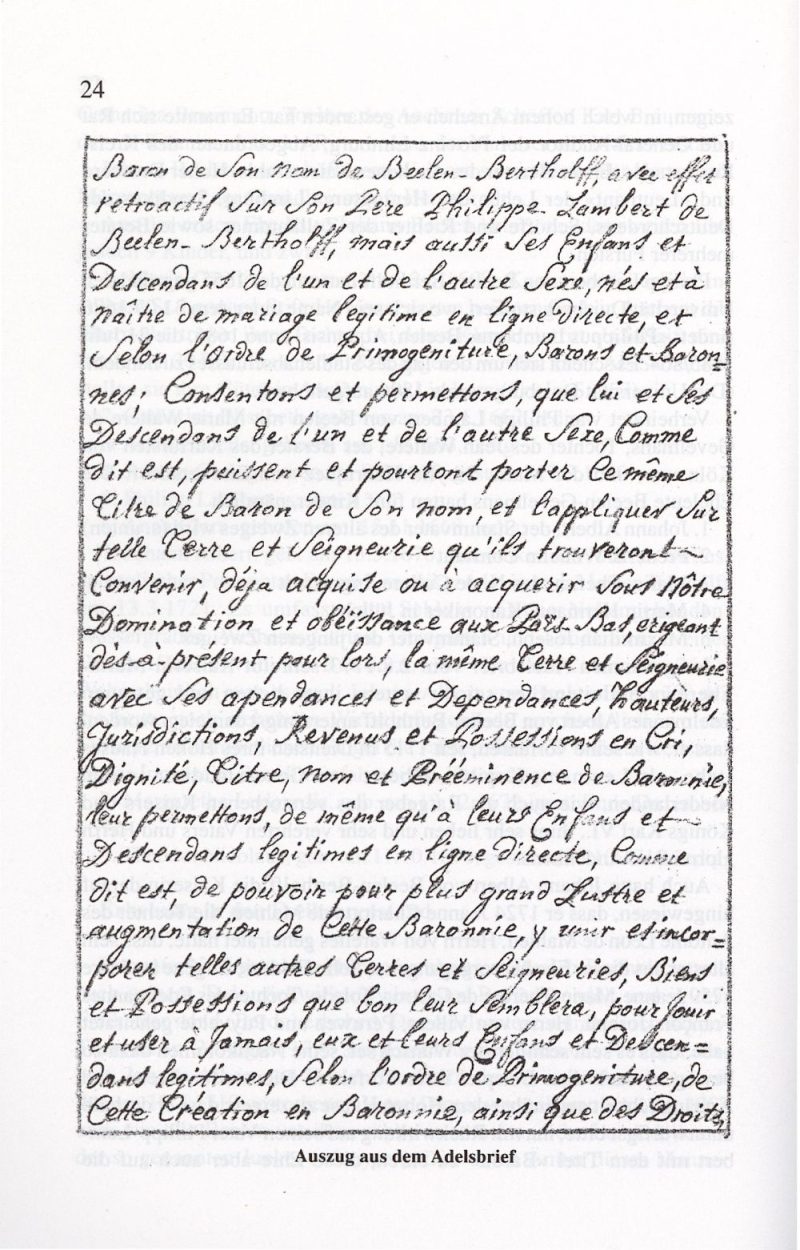 24
Baron de Son nom de Beelen-Bertholff, avec effet
retroactif Sur Son Pere Philippe Lambert de
Beelen-Bertholff, mais aussi Ses Enfans et
Descendans de l'un et de l'autre Sexe, nés et à
naître de mariage legitime en ligne directe, et
Selon l'ordre de Primogeniture, Barons et Baron=
nes; Consentons et permettons, que lui et Ses
Descendans de l'un et de l'autre Sexe, Comme
dit est, puissent et pourront porter Ce même
Titre de Baron de Son nom et l'appliquer Sur
telle Terre et Seigneurie qu'ils trouveront
Convenir, déja acquise ou à acquerir Sous Nôtre
Domination et obéissance aux Païs-Bas, erigeant
dés-à-present pour lors, la même Terre et Seigneurie
avec Ses apendances et Dependances, hauteurs,
Jurisdictions, Revenus et Possessions en Cri,
Dignité, Titre, nom et Prééminence de Baronnie,
leur permettons, de même qu'à leurs Enfans et
Descendans legitimes en ligne directe, Comme
dit est, de pouvoir pour plus grand Lustre et
augmentation de Cette Baronnie, y unir et incor=
porer telles autres Terres et Seigneuries, Biens
et Possessions que bon leur Semblera, pour Jouir
et user à Jamais, eux et leurs Enfans et Descen=
dans legitimes, Selon l'ordre de Primogeniture, de
Cette Création en Baronnie, ainsi que des Droits
Auszug aus dem Adelsbrief